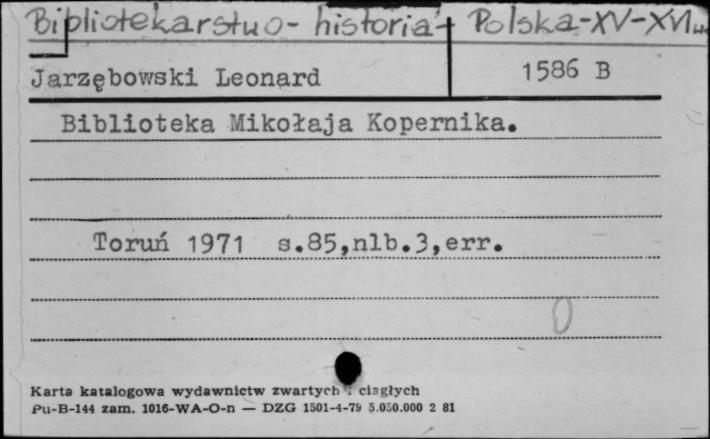 Bibliotekarstwo - historia - Polska - XV-XVI w.
Jarzębowski Leonard
1586 B
Biblioteka Mikołaja Kopernika.
Toruń 1971 s.85,nlb.3,err.
0
Karta katalogowa wydawnictw zwartych i ciągłych
Pu-B-144 zam. 1016-WA-O-n — DZG 1501-4-79 5.050.000 2 81